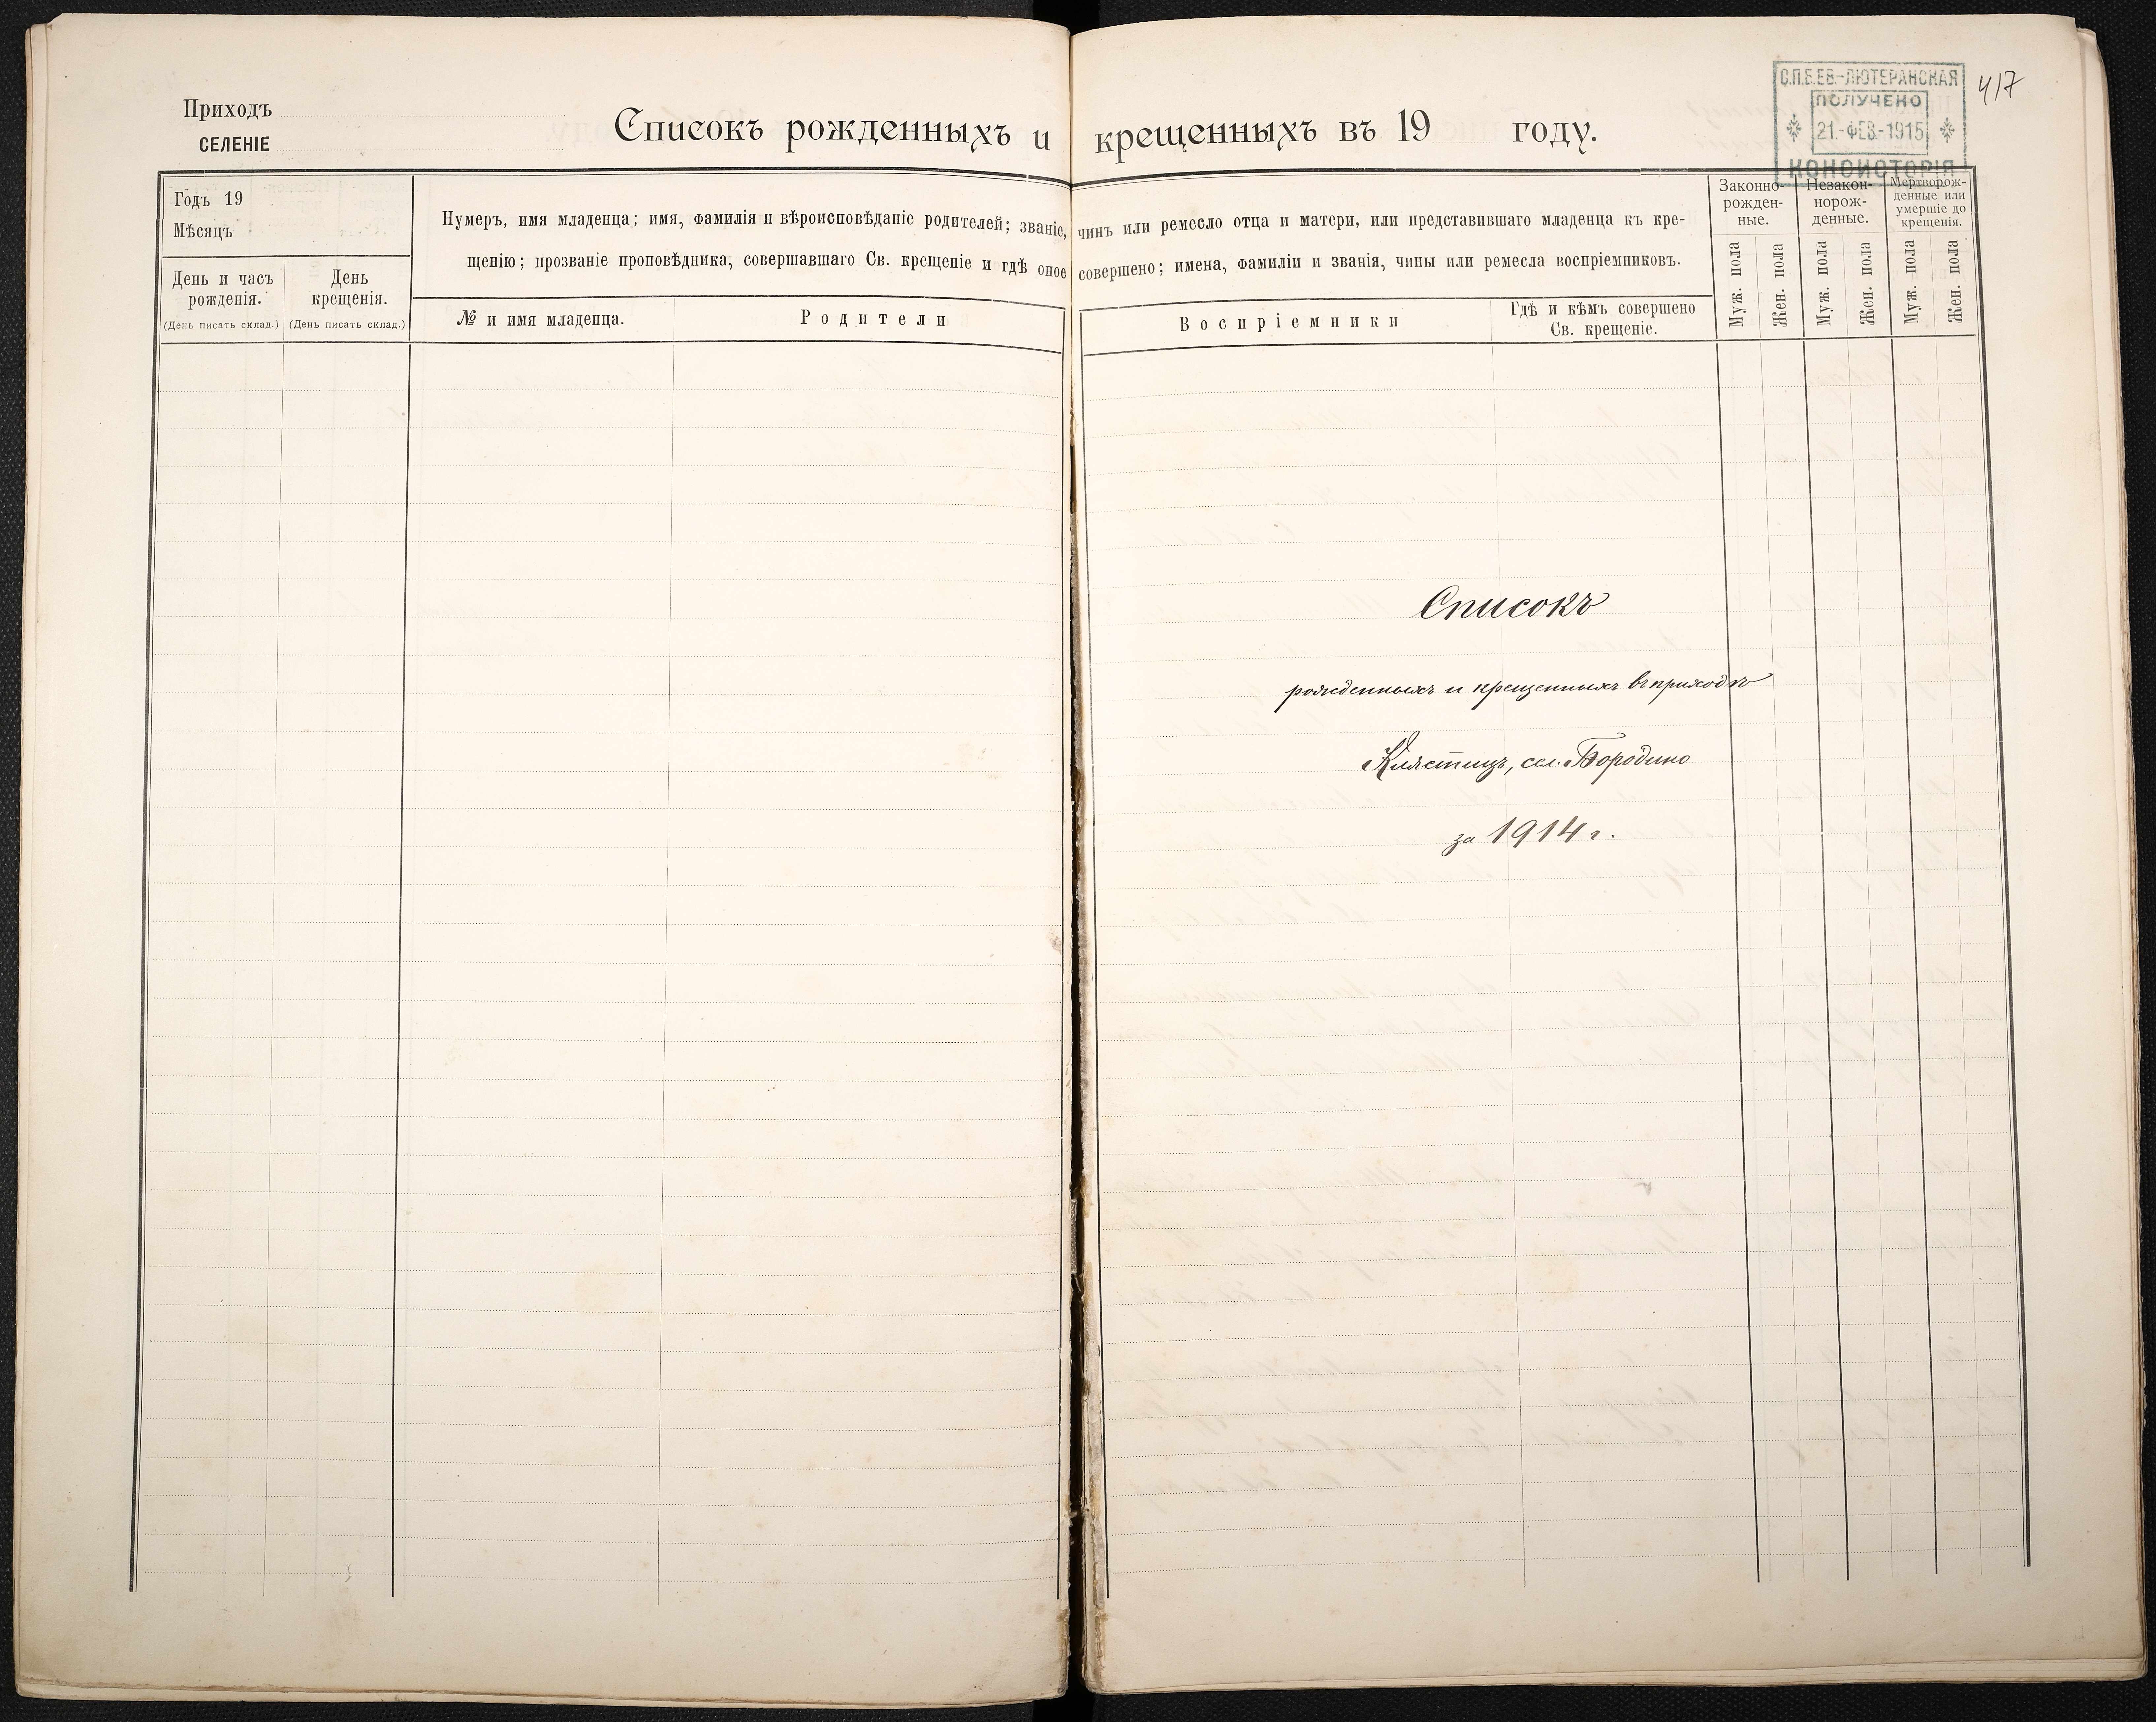 Приходъ
СЕЛЕНІЕ
Списокъ рожденныхъ и крещенныхъ въ 19 году.
С.П.Б.ЕВ.-ЛЮТЕРАНСКАЯ
ПОЛУЧЕНО
21.-ФЕВ.-1915
КОНСИСТОРІЯ
417
Годъ 19
Мѣсяцъ
День и часъ
рожденія.
(День писать склад.)
День
крещенія.
(День писать склад.)
Нумеръ, имя младенца; имя, фамилія и вѣроисповѣданіе родителей; званіе, чинъ или ремесло отца и матери, или представившаго младенца къ кре-
щенію; прозваніе проповѣдника, совершавшаго Св. крещеніе и гдѣ оное совершено; имена, фамиліи и званія, чины или ремесла воспріемниковъ.
№ и имя младенца.
Родители
Воспріемники
Гдѣ и кѣмъ совершено
Св. крещеніе.
Законно-
рожден-
ные.
Незакон-
норож-
денные.
Мертворож-
денные или
умершіе до
крещенія.
Муж. пола
Жен. пола
Муж. пола
Жен. пола
Муж. пола
Жен. пола
Списокъ
рожденныхъ и крещенныхъ въ приходѣ
Клястицъ, сел. Бородино
за 1914 г.